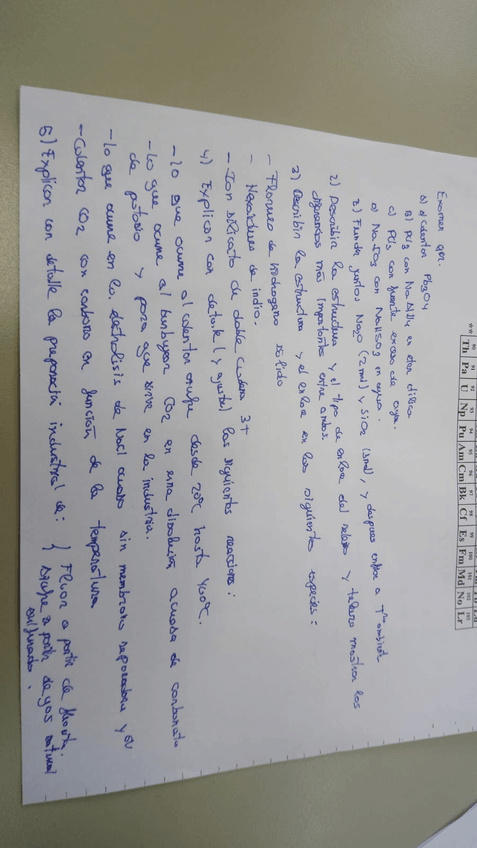 Examen qm.
a) al calentar Pb3O4
b) PCl5 con NaBH4 en éter dílico
c) PCl5 con fuente exceso de agua.
d) NaIO3 con NaHSO3 en agua.
e) Funde juntos Na2O (2mol) y SiO2 (1mol), y después enfría a Tª ambient
2) Describir la estructura y el tipo de enlace del selenio y teluro mostrar las
diferencias más importantes entre ambos.
3) Describir la estructura y el enlace en las siguientes especies:
- Fluoruro de hidrógeno sólido
- de indio.
- Ion silicato de doble cadena
4) Explicar con detalle (y ajustar) las siguientes reacciones:
- lo que ocurre al calentar azufre desde 20ºC hasta 400ºC.
- lo que ocurre al burbujear CO2 en una disolución acuosa de carbonato
de potasio y para que sirve en la industria.
- lo que ocurre en la electrolisis de NaCl acuoso sin membrana separadora y su
- Calentar CO2 con carbono en función de la temperatura
5) Explicar con detalle la preparación industrial de: { Fluor a partir de fluorita.
azufre a partir de gas natural
sulfurado.
90 91 92 93 94 95 96 97 98 99 100 101 102 103
Th Pa U Np Pu Am Cm Bk Cf Es Fm Md No Lr